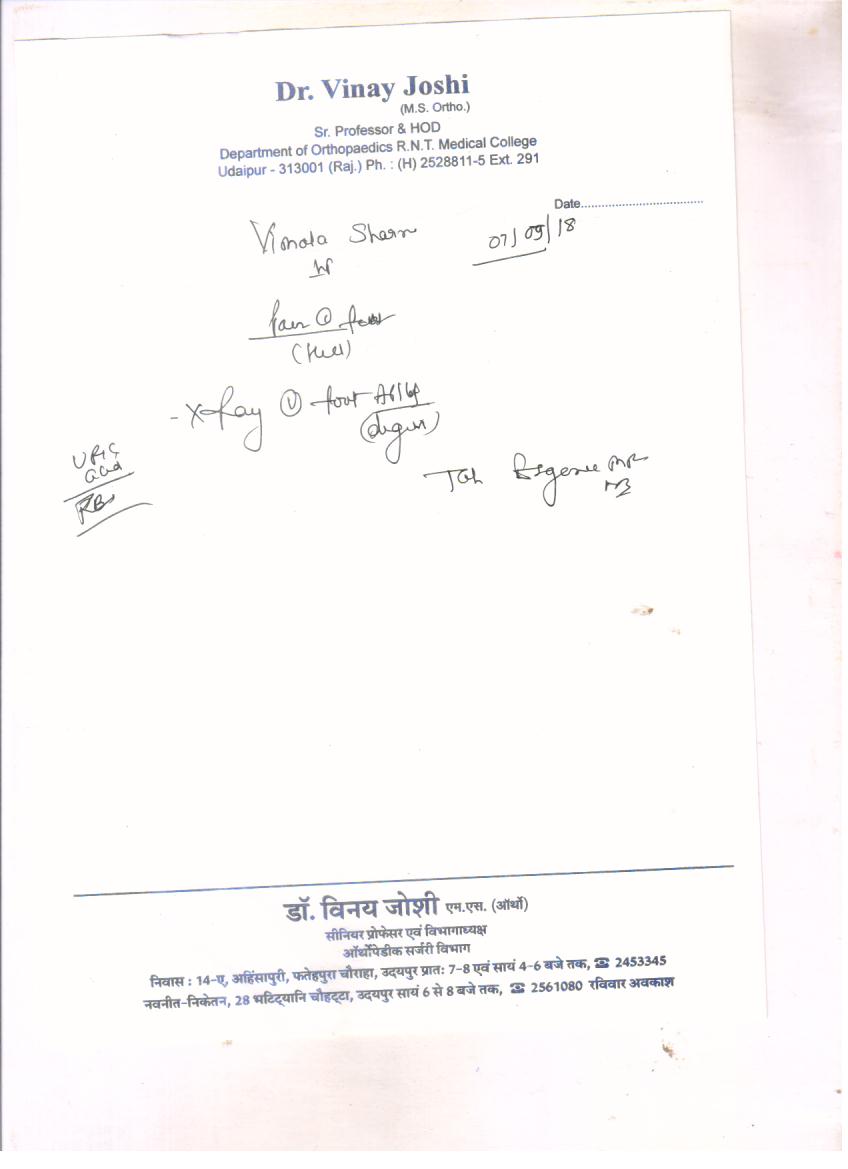 Dr. Vinay Joshi
(M.S. Ortho.)
Sr. Professor & HOD
Department of Orthopaedics R.N.T. Medical College
Udaipur - 313001 (Raj.) Ph. : (H) 2528811-5 Ext. 291
Date....................................
07/09/18
(Heel)
- X-Ray foot
Uric
acid
RBS
Tab
डॉ. विनय जोशी एम.एस. (ऑर्थो)
सीनियर प्रोफेसर एवं विभागाध्यक्ष
ऑर्थोपेडीक सर्जरी विभाग
निवास : 14-ए, अहिंसापुरी, फतेहपुरा चौराहा, उदयपुर प्रातः 7-8 एवं सायं 4-6 बजे तक, ☎ 2453345
नवनीत-निकेतन, 28 भटि्टयानि चौहट्टा, उदयपुर सायं 6 से 8 बजे तक, ☎ 2561080 रविवार अवकाश